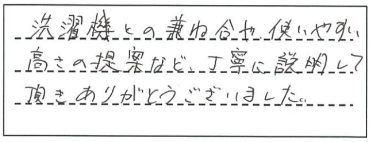 洗濯機との兼ね合や使いやすい
高さの提案など、丁寧に説明して
頂きありがとうございました。